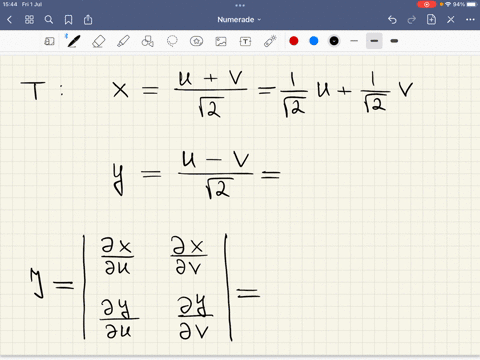 15:44 Fri 1 Jul 94%
Numerade
T : x = \frac{u + v}{\sqrt{2}} = \frac{1}{\sqrt{2}} u + \frac{1}{\sqrt{2}} v
y = \frac{u - v}{\sqrt{2}} =
J = \begin{vmatrix} \frac{∂x}{∂u} & \frac{∂x}{∂v} \\ \frac{∂y}{∂u} & \frac{∂y}{∂v} \end{vmatrix} =